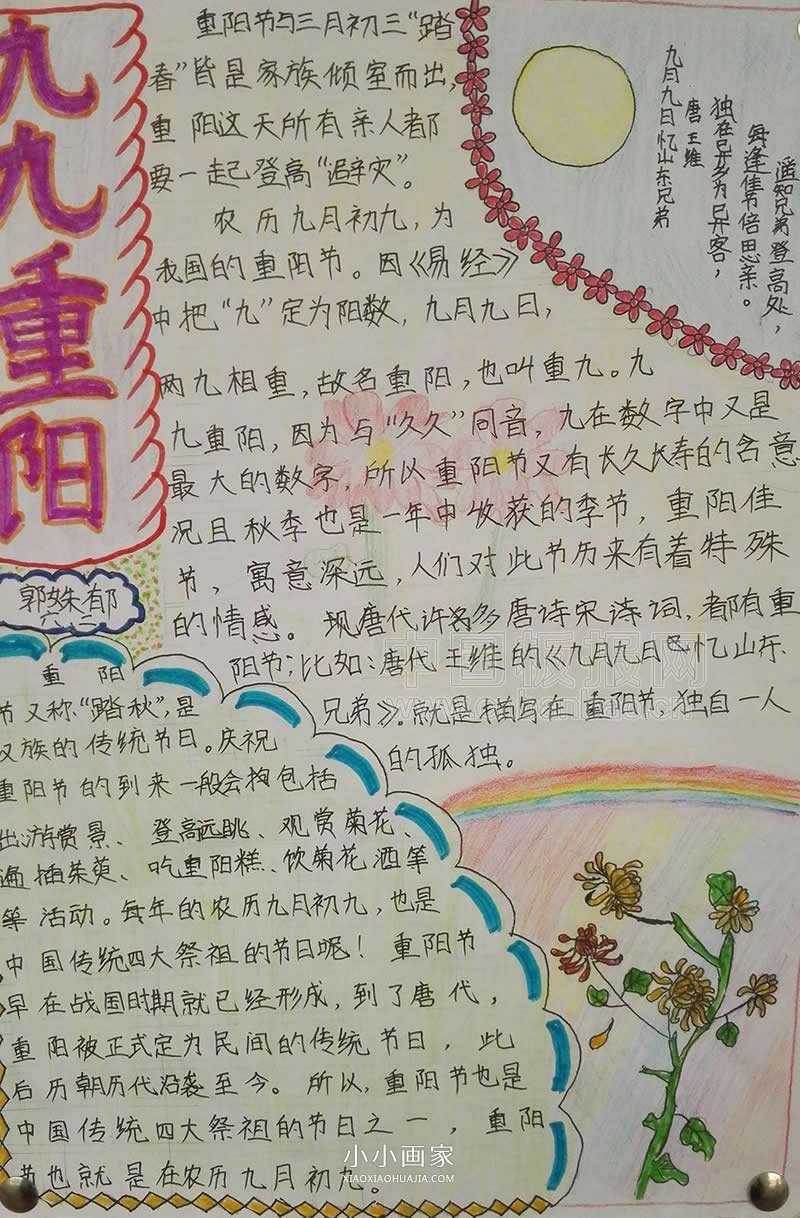 九九重阳
重阳节与三月初三“踏
春”皆是家族倾室而出，
重阳这天所有亲人都
要一起登高“避灾”。
农历九月初九，为
我国的重阳节。因《易经》
中把“九”定为阳数，九月九日，
两九相重，故名重阳，也叫重九。九
九重阳，因为与“久久”同音，九在数字中又是
最大的数字，所以重阳节又有长久长寿的含意
况且秋季也是一年中收获的季节，重阳佳
节，寓意深远，人们对此节历来有着特殊
的情感。现唐代许多唐诗宋诗词，都有重
阳节；比如：唐代王维的《九月九日忆山东
兄弟》。就是描写在重阳节，独自一人
的孤独。
九月九日忆山东兄弟
唐 王维
独在异乡为异客，
每逢佳节倍思亲。
遥知兄弟登高处，
郭姝郁
六、二
重阳
节又称“踏秋”，是
汉族的传统节日。庆祝
重阳节的到来一般会包括
出游赏景、登高远眺、观赏菊花、
遍插茱萸、吃重阳糕、饮菊花酒等
等活动。每年的农历九月初九，也是
中国传统四大祭祖的节日呢！重阳节
早在战国时期就已经形成，到了唐代，
重阳被正式定为民间的传统节日，此
后历朝历代沿袭至今。所以，重阳节也是
中国传统四大祭祖的节日之一，重阳
节也就是在农历九月初九。
中国板报网
小小画家
XIAOXIAOHUAJIA.COM